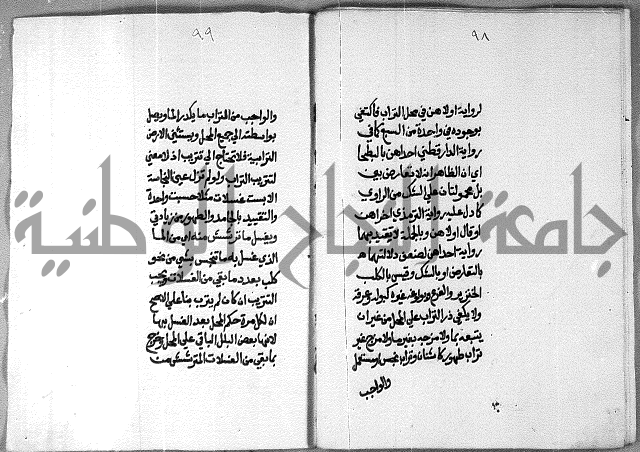 ٩٨
لرواية اولاهن في محل التراب فاكتفي
بوجوده في واحدة من السبع كما في
رواية الدارقطني احداهن بالبطحا
اي ان الظاهر انه لا تعارض بين
بل محمولتان علي الشك من الراوي
كما دل عليه رواية الترمذي اخراهن
او قال اولاهن وبالجملة لا تقيد بهما
رواية احداهن لضعف دلالتهما
بالتعارض او بالشك وقيس بالكلب
الخنزير والفرع وبولهما غيره كبوله وعرقه
ولا يكفي ذر التراب علي المحل من غير ان
يتبعه بما ولا مزجه بغير ما ولا مزج غير
تراب طهور كاشنان وتراب نجس ومستعمل
والواجب
٩٩
والواجب من التراب ما يكدر الما ويصل
بواسطته الي جميع المحل ويستثني الارض
الترابية فلا تحتاج الي تتريب اذ لا معني
لتتريب التراب ولو لم تزل عين النجاسة
الا بست غسلات مثلا حسبت واحدة
والتقييد بالجامد والطهور من زيادتي
ويغسل ما ترشش منه اي من الما
الذي غسل به ما تنجس بشي من نحو
كلب بعدد ما بقي من الغسلات ويجب
التتريب ان كان لم يترب بناء علي الاصح
ان لكل مرة حكم المحل بعد الغسل بها
لانها بعض البلل الباقي علي المحل وخرج
بما بقي من الغسلات المترشش من
جامعة النجاح الوطنية